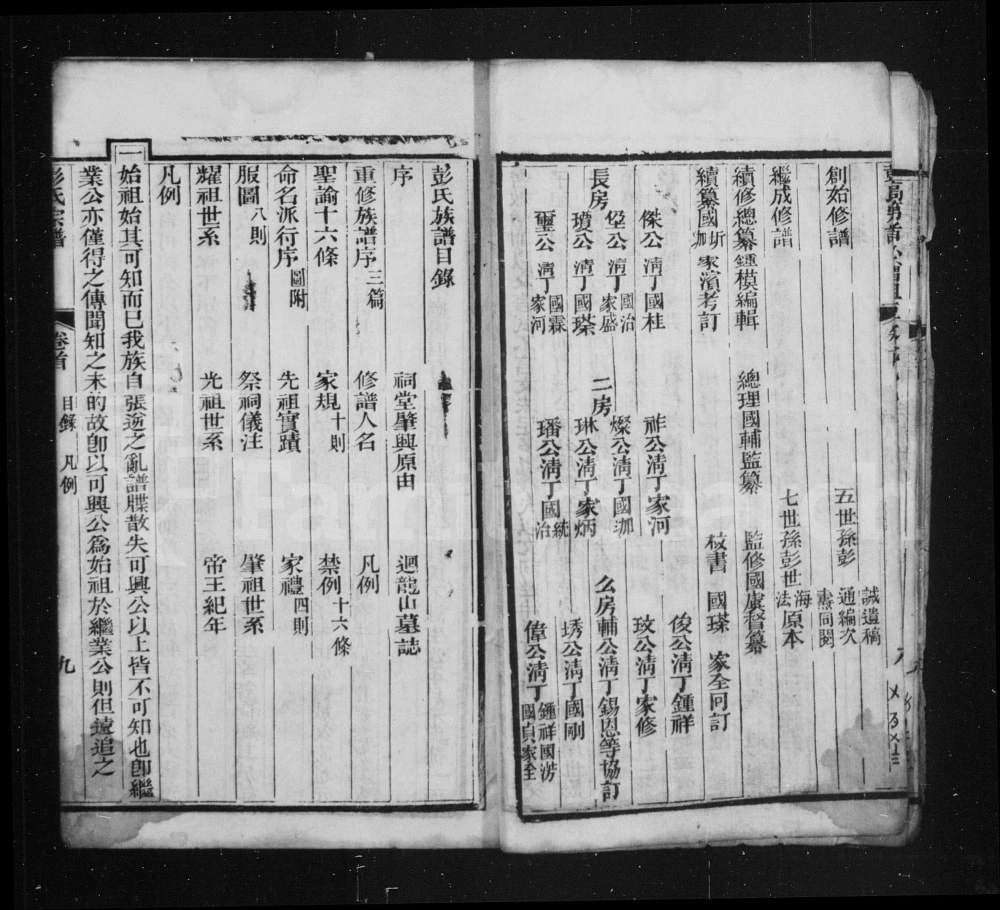 創始修譜 五世孫彭 誠遺稿 通編次 憲同閱
繼成修譜 七世孫彭世 海 法 原本
續修總纂鍾模編輯 總理國輔監纂 監修國虞督纂
續纂國 家濱考訂 校書 國璨 家全同訂
長房
傑公 清丁國桂
公 清丁 國治 家盛
瓊公 清丁國璨
璽公 清丁 國霖 家河
二房
祚公清丁家河
燦公清丁國珈
琳公清丁家炳
璠公清丁國 統 治
么房輔公清丁錫恩等協訂
俊公清丁鍾祥
玫公清丁家修
琇公清丁國剛
偉公清丁 鍾祥國滂 國貞家全
彭氏族譜目錄
序
重修族譜序三篇 修譜人名 凡例
祠堂肇興原由 迴龍山墓誌
聖諭十六條 家規十則 禁例十六條
命名派行序圖附 先祖實蹟 家禮四則
服圖八則 祭祠儀注 肇祖世系
耀祖世系 光祖世系 帝王紀年
凡例
一始祖始其可知而已我族自張逆之亂譜牒散失可興公以上皆不可知也卽繼
業公亦僅得之傳聞知之未的故卽以可興公為始祖於繼業公則但遠追之
彭氏宗譜 卷首 目錄 凡例 九